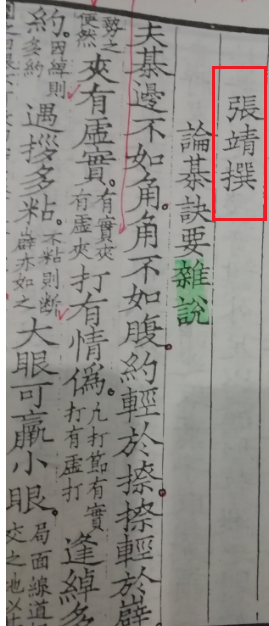 張靖撰
論棊訣要雜說
夫棊邊不如角。角不如腹。約輕於捺。捺輕於
勢之便然夾有虛實。有實夾有虛夾打有情僞。凡打莭有實打有虛打逢綽多
約。因綽則多約遇拶多粘。不粘則斷亦如之大眼可贏小眼。局面線道交之地